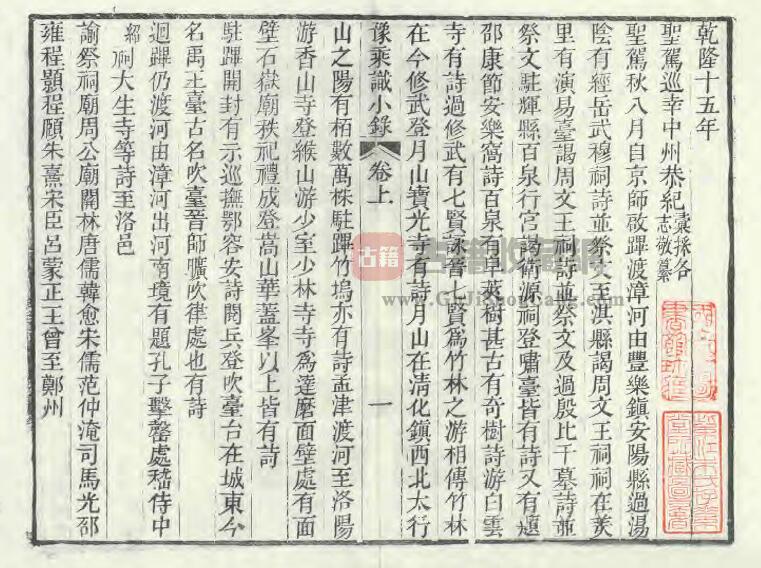 乾隆十五年
聖駕巡幸中州恭紀彙採各志敬纂
聖駕秋八月自京師啟蹕渡漳河由豐樂鎮安陽縣過湯
陰有經岳武穆祠詩並祭文至淇縣謁周文王祠祠在羑
里有演易臺謁周文王祠詩並祭文及過殷比干墓詩並
祭文駐輝縣百泉行宮謁衛源祠登嘯臺皆有詩又有題
邵康節安樂窩詩百泉有阜莢樹甚古有奇樹詩游白雲
寺有詩過修武有七賢詠晉七賢為竹林之游相傳竹林
在今修武登月山寶光寺有詩月山在清化鎮西北太行
豫乘識小錄 卷上 一
山之陽有栢數萬株駐蹕竹塢亦有詩孟津渡河至洛陽
游香山寺登緱山游少室少林寺寺為達磨面壁處有面
壁石嶽廟秩祀禮成登嵩山華蓋峯以上皆有詩
駐蹕開封有示巡撫鄂容安詩閱兵登吹臺台在城東今
名禹王臺古名吹臺晉師曠吹律處也有詩
迴蹕仍渡河由漳河出河南境有題孔子擊磬處嵇侍中
紹祠大生寺等詩至洛邑
諭祭祠廟周公廟關林唐儒韓愈朱儒范仲淹司馬光邵
雍程顥程頤朱熹宋臣呂蒙正王曾至鄭州
古籍
古籍收藏網
www.GuJiShouCang.com